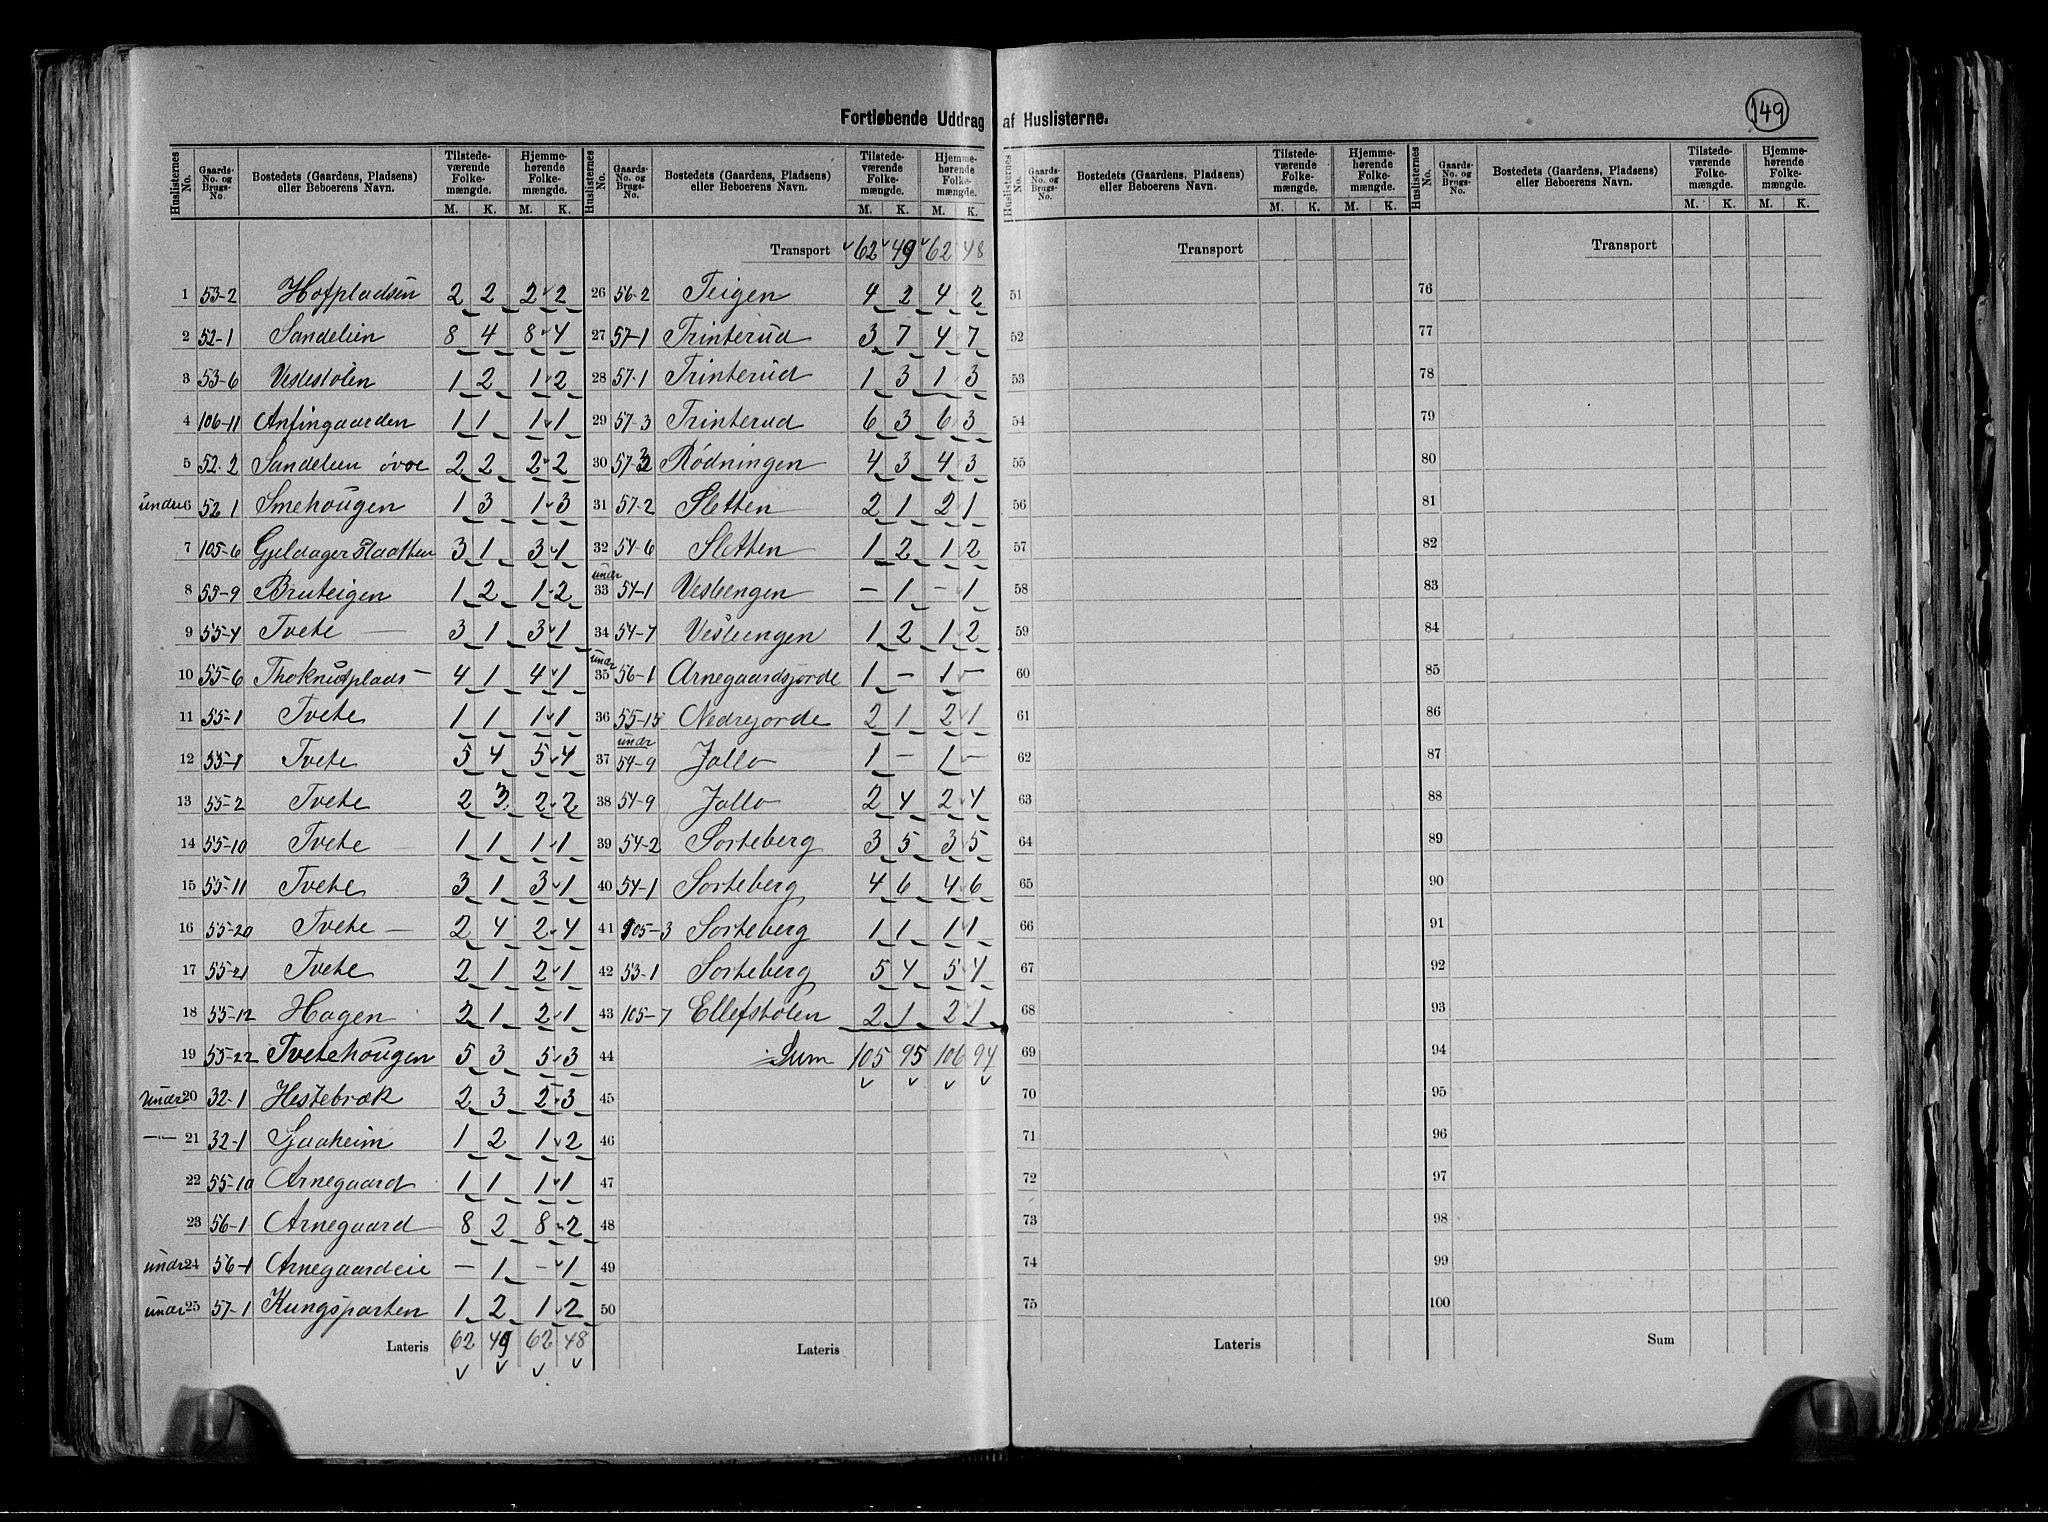 Fortløbende Uddrag af Huslisterne.
149
Huslisternes No. | Gaards-No. og Brugs-No. | Bostedets (Gaardens, Pladsens) eller Beboerens Navn. | Tilstedeværende Folkemængde. M. K. | Hjemmehørende Folkemængde. M. K.
1 53-2 Hofpladsen 2 2 2 2
2 52-1 Sandelien 8 4 8 4
3 53-6 Veslestölen 1 2 1 2
4 106-11 Anfingaarden 1 1 1 1
5 52-2 Sandelien øvre 2 2 2 2
under 6 52 1 Smehougen 1 3 1 3
7 105-6 Gjeldager Slaatten 3 1 3 1
8 55-9 Bruteigen 1 2 1 2
9 55-4 Tvete — 3 1 3 1
10 55-6 Thoknutplads — 4 1 4 1
11 55-1 Tvete 1 1 1 1
12 55-1 Tvete 5 4 5 4
13 55-2 Tvete 2 3 2 2
14 55-10 Tvete — 1 1 1 1
15 55-11 Tvete 3 1 3 1
16 55-20 Tvete — 2 4 2 4
17 55-21 Tvete 2 1 2 1
18 55-12 Hagen 2 1 2 1
19 55-22 Tvetehougen 5 3 5 3
under 20 32-1 Hestebræk 2 3 2 3
—"— 21 32-1 Gaaheim 1 2 1 2
22 55-10 Arnegaard 1 1 1 1
23 56-1 Arnegaard 8 2 8 2
under 24 56-1 Arnegaardeie — 1 — 1
under 25 57-1 Kungsparten 1 2 1 2
Lateris 62 49 62 48
Huslisternes No. | Gaards-No. og Brugs-No. | Bostedets (Gaardens, Pladsens) eller Beboerens Navn. | Tilstedeværende Folkemængde. M. K. | Hjemmehørende Folkemængde. M. K.
Transport 62 49 62 48
26 56-2 Teigen 4 2 4 2
27 57-1 Trinterud 3 7 4 7
28 57-1 Trinterud 1 3 1 3
29 57-3 Trinterud 6 3 6 3
30 57-2 Rödningen 4 3 4 3
31 57-2 Sletten 2 1 2 1
32 54-6 Sletten 1 2 1 2
under 33 54-1 Vesleengen — 1 — 1
34 54-7 Vesleengen 1 2 1 2
under 35 56-1 Arnegaardsjorde 1 — 1 —
36 55-15 Nedrejorde 2 1 2 1
under
37 54-9 Jallo 1 — 1 —
38 54-9 Jallo 2 4 2 4
39 54-2 Sorteberg 3 5 3 5
40 54-1 Sorteberg 4 6 4 6
41 105-3 Sorteberg 1 1 1 1
42 53-1 Sorteberg 5 4 5 4
43 105-7 Ellefstølen 2 1 2 1
44 Sum 105 95 106 94
45
46
47
48
49
50
Lateris
Huslisternes No. | Gaards-No. og Brugs-No. | Bostedets (Gaardens, Pladsens) eller Beboerens Navn. | Tilstedeværende Folkemængde. M. K. | Hjemmehørende Folkemængde. M. K.
Transport
51
52
53
54
55
56
57
58
59
60
61
62
63
64
65
66
67
68
69
70
71
72
73
74
75
Lateris
Huslisternes No. | Gaards-No. og Brugs-No. | Bostedets (Gaardens, Pladsens) eller Beboerens Navn. | Tilstedeværende Folkemængde. M. K. | Hjemmehørende Folkemængde. M. K.
Transport
76
77
78
79
80
81
82
83
84
85
86
87
88
89
90
91
92
93
94
95
96
97
98
99
100
Sum